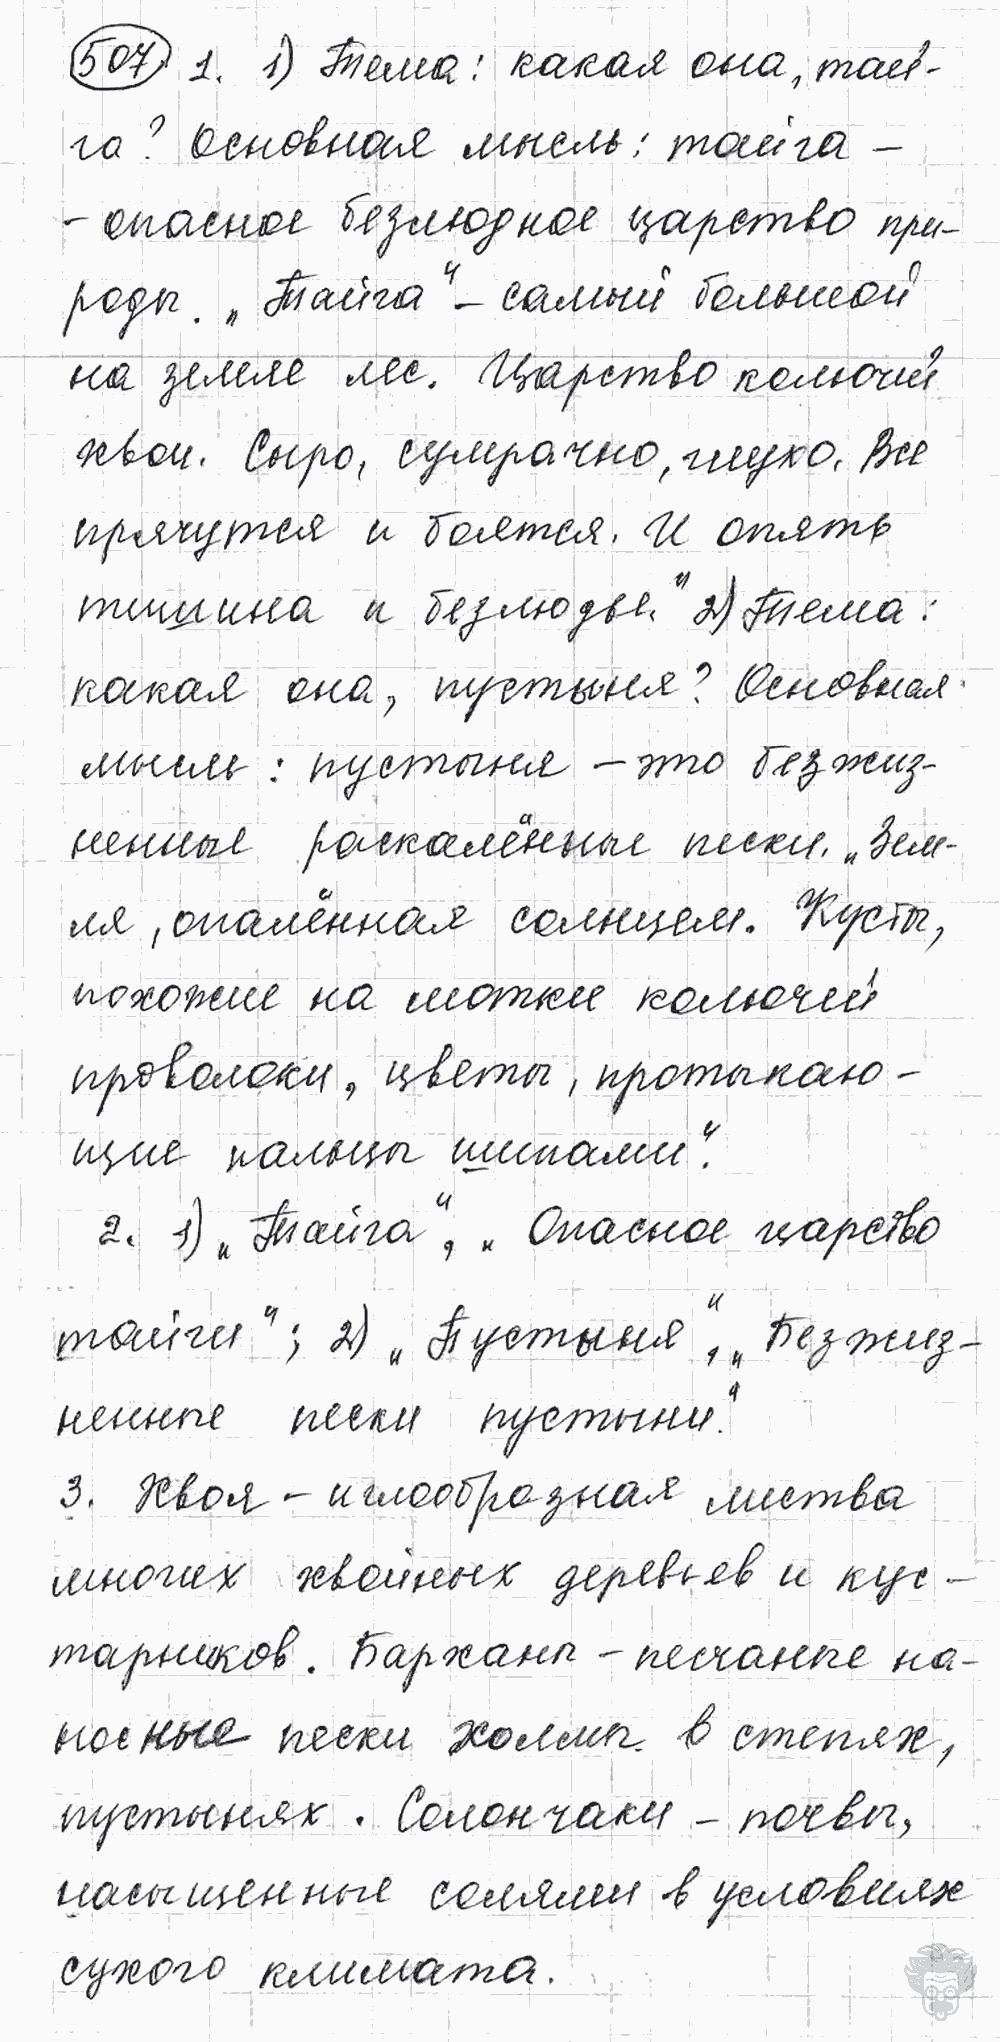 507. 1. 1) Тема: какая она, тай-
га? Основная мысль: тайга –
- опасное безлюдное царство при-
роды. „Тайга“ – самый большой
на земле лес. Царство колючей
хвои. Сыро, сумрачно, глухо. Все
прячутся и боятся. И опять
тишина и безлюдье.“ 2) Тема:
какая она, пустыня? Основная
мысль: пустыня – это безжиз-
ненные раскалённые пески. „Зем-
ля, опалённая солнцем. Кусты,
похожие на мотки колючей
проволоки, цветы, протыкаю-
щие пальцы шипами“.
2. 1) „Тайга“, „Опасное царство
тайги“; 2) „Пустыня“, „Безжиз-
ненные пески пустыни“.
3. Хвоя – иглообразная листва
многих хвойных деревьев и кус-
тарников. Барханы – песчаные на-
носные пески холмы в степях,
пустынях. Солончаки – почвы,
насыщенные солями в условиях
сухого климата.